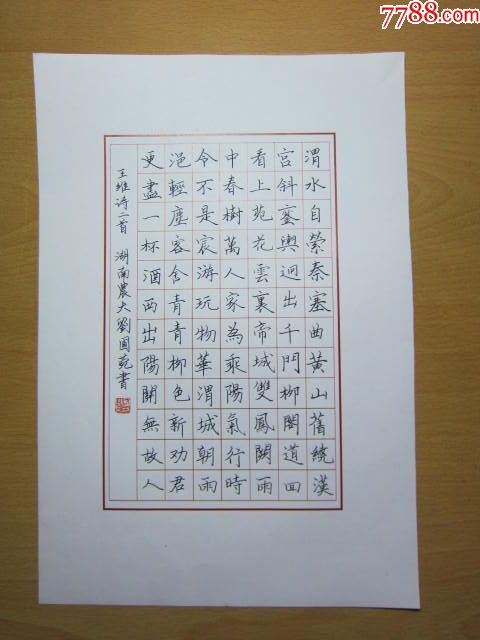 7788.com
渭水自縈秦塞曲黄山舊繞漢
宫斜鑾輿迥出千門柳閣道回
看上苑花雲裏帝城雙鳳闕雨
中春樹萬人家為乘陽氣行時
令不是宸游玩物華渭城朝雨
浥輕塵客舍青青柳色新劝君
更盡一杯酒西出陽関無故人
王维诗二首 湖南農大劉書